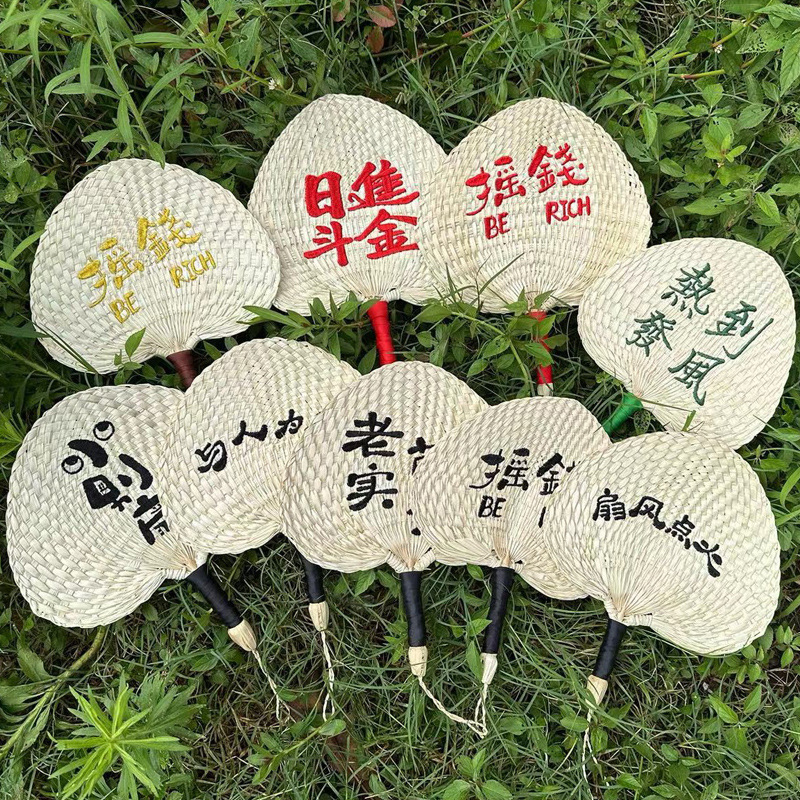 摇錢
BE RICH
日進
斗金
摇錢
BE RICH
熱到
發风
与人为
老
实
摇錢
BE
扇风点火